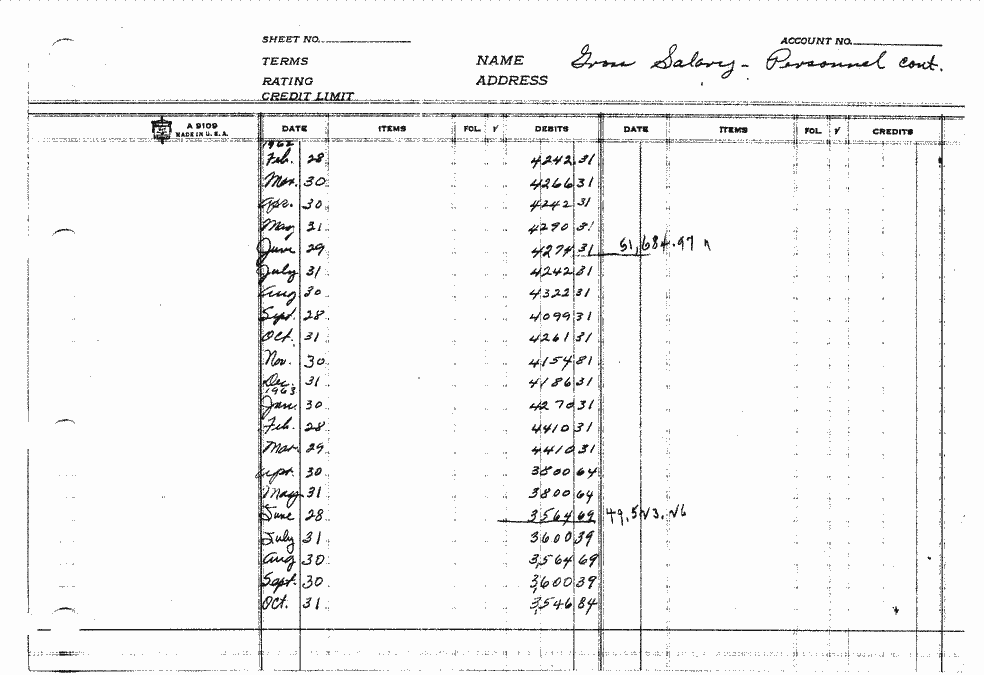 SHEET NO.
ACCOUNT NO.
TERMS
NAME Gross Salary - Personnel cont.
RATING
ADDRESS
CREDIT LIMIT
A 9109
MADE IN U.S.A.
DATE ITEMS FOL. √ DEBITS DATE ITEMS FOL. √ CREDITS
1962
Feb. 28 4242 31
Mar. 30 4266 31
Apr. 30 4242 31
May 31 4290 31
June 29 4274 31 51,684.97
July 31 4242 31
Aug 30 4322 31
Sept. 28 4099 31
Oct. 31 4261 31
Nov. 30 4154 81
Dec. 31 4186 31
1963
Jan. 30 4270 31
Feb. 28 4410 31
Mar. 29 4410 31
Apr. 30 3800 64
May 31 3800 64
June 28 3564 69 49,523.26
July 31 3600 39
Aug 30 3,564 69
Sept. 30 3,600 39
Oct. 31 3,546 84